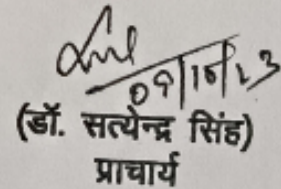 09/10/23
(डॉ. सत्येन्द्र सिंह)
प्राचार्य